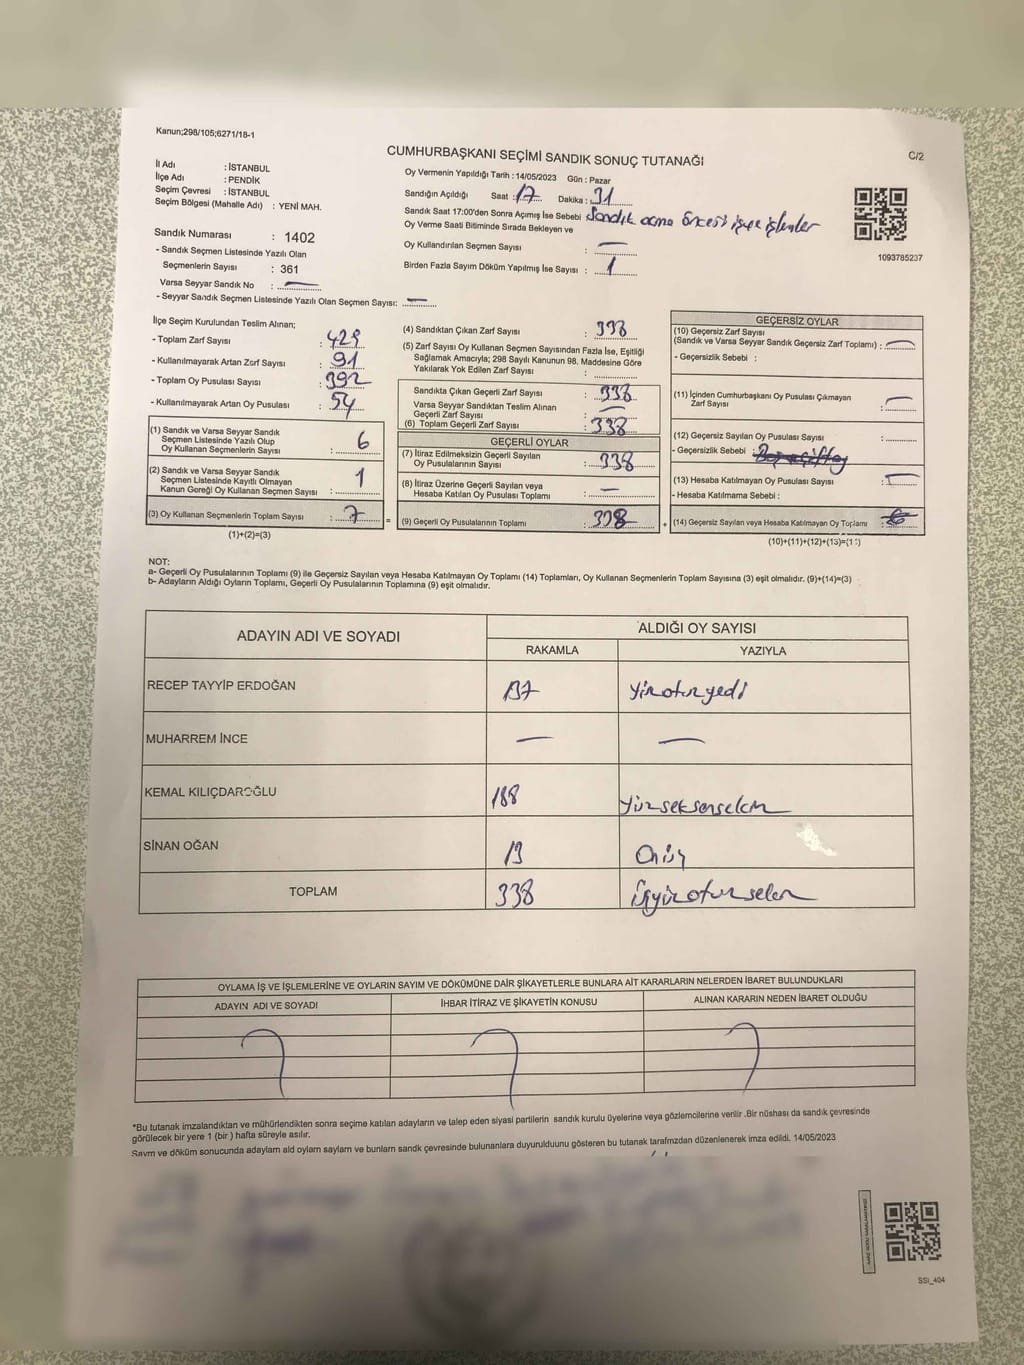 Kanun;298/105;6271/18-1
CUMHURBAŞKANI SEÇİMİ SANDIK SONUÇ TUTANAĞI
C/2
İl Adı : İSTANBUL
İlçe Adı : PENDİK
Seçim Çevresi : İSTANBUL
Seçim Bölgesi (Mahalle Adı) : YENİ MAH.
Sandık Numarası : 1402
- Sandık Seçmen Listesinde Yazılı Olan
Seçmenlerin Sayısı : 361
Varsa Seyyar Sandık No : —
- Seyyar Sandık Seçmen Listesinde Yazılı Olan Seçmen Sayısı: —
Oy Vermenin Yapıldığı Tarih : 14/05/2023 Gün : Pazar
Sandığın Açıldığı Saat : 17 Dakika : 31
Sandık Saat 17:00'den Sonra Açımış İse Sebebi : Sandık açma öncesi işlemler
Oy Verme Saati Bitiminde Sırada Bekleyen ve
Oy Kullandırılan Seçmen Sayısı : —
Birden Fazla Sayım Döküm Yapılmış İse Sayısı : 1
1093785237
İlçe Seçim Kurulundan Teslim Alınan;
- Toplam Zarf Sayısı : 429
- Kullanılmayarak Artan Zarf Sayısı : 91
- Toplam Oy Pusulası Sayısı : 392
- Kullanılmayarak Artan Oy Pusulası : 54
(1) Sandık ve Varsa Seyyar Sandık
Seçmen Listesinde Yazılı Olup
Oy Kullanan Seçmenlerin Sayısı : 6
(2) Sandık ve Varsa Seyyar Sandık
Seçmen Listesinde Kayıtlı Olmayan
Kanun Gereği Oy Kullanan Seçmen Sayısı : 1
(3) Oy Kullanan Seçmenlerin Toplam Sayısı : 7 =
(1)+(2)=(3)
(4) Sandıktan Çıkan Zarf Sayısı : 338
(5) Zarf Sayısı Oy Kullanan Seçmen Sayısından Fazla İse, Eşitliği
Sağlamak Amacıyla; 298 Sayılı Kanunun 98. Maddesine Göre
Yakılarak Yok Edilen Zarf Sayısı :
Sandıkta Çıkan Geçerli Zarf Sayısı : 338
Varsa Seyyar Sandıktan Teslim Alınan
Geçerli Zarf Sayısı : —
(6) Toplam Geçerli Zarf Sayısı : 338
GEÇERLİ OYLAR
(7) İtiraz Edilmeksizin Geçerli Sayılan
Oy Pusulalarının Sayısı : 338
(8) İtiraz Üzerine Geçerli Sayılan veya
Hesaba Katılan Oy Pusulası Toplamı : —
(9) Geçerli Oy Pusulalarının Toplamı : 338 +
GEÇERSİZ OYLAR
(10) Geçersiz Zarf Sayısı
(Sandık ve Varsa Seyyar Sandık Geçersiz Zarf Toplamı) : —
- Geçersizlik Sebebi :
(11) İçinden Cumhurbaşkanı Oy Pusulası Çıkmayan
Zarf Sayısı : —
(12) Geçersiz Sayılan Oy Pusulası Sayısı :
- Geçersizlik Sebebi :
(13) Hesaba Katılmayan Oy Pusulası Sayısı : —
- Hesaba Katılmama Sebebi :
(14) Geçersiz Sayılan veya Hesaba Katılmayan Oy Toplamı :
(10)+(11)+(12)+(13)=(14)
NOT:
a- Geçerli Oy Pusulalarının Toplamı (9) ile Geçersiz Sayılan veya Hesaba Katılmayan Oy Toplamı (14) Toplamları, Oy Kullanan Seçmenlerin Toplam Sayısına (3) eşit olmalıdır. (9)+(14)=(3)
b- Adayların Aldığı Oyların Toplamı, Geçerli Oy Pusulalarının Toplamına (9) eşit olmalıdır.
ADAYIN ADI VE SOYADI
ALDIĞI OY SAYISI
RAKAMLA YAZIYLA
RECEP TAYYİP ERDOĞAN 137 Yüzotuzyedi
MUHARREM İNCE — —
KEMAL KILIÇDAROĞLU 188 Yüzseksensekiz
SİNAN OĞAN 13 Onüç
TOPLAM 338 Üçyüzotuzsekiz
OYLAMA İŞ VE İŞLEMLERİNE VE OYLARIN SAYIM VE DÖKÜMÜNE DAİR ŞİKAYETLERLE BUNLARA AİT KARARLARIN NELERDEN İBARET BULUNDUKLARI
ADAYIN ADI VE SOYADI İHBAR İTİRAZ VE ŞİKAYETİN KONUSU ALINAN KARARIN NEDEN İBARET OLDUĞU
*Bu tutanak imzalandıktan ve mühürlendikten sonra seçime katılan adayların ve talep eden siyasi partilerin sandık kurulu üyelerine veya gözlemcilerine verilir .Bir nüshası da sandık çevresinde
görülecek bir yere 1 (bir ) hafta süreyle asılır.
Sayım ve döküm sonucunda adayların ald oyların sayıları ve bunların sandık çevresinde bulunanlara duyurulduunu gösteren bu tutanak tarafmzdan düzenlenerek imza edildi. 14/05/2023
SSI_404